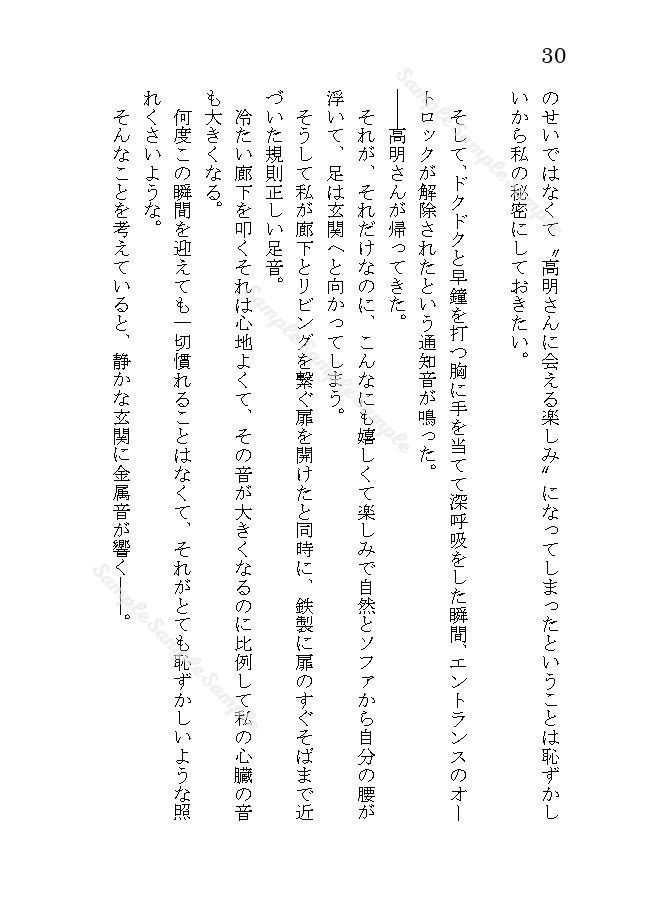 30
のせいではなくて〝高明さんに会える楽しみ〟になってしまったということは恥ずかし
いから私の秘密にしておきたい。
そして、ドクドクと早鐘を打つ胸に手を当てて深呼吸をした瞬間、エントランスのオー
トロックが解除されたという通知音が鳴った。
――高明さんが帰ってきた。
それが、それだけなのに、こんなにも嬉しくて楽しみで自然とソファから自分の腰が
浮いて、足は玄関へと向かってしまう。
そうして私が廊下とリビングを繋ぐ扉を開けたと同時に、鉄製に扉のすぐそばまで近
づいた規則正しい足音。
冷たい廊下を叩くそれは心地よくて、その音が大きくなるのに比例して私の心臓の音
も大きくなる。
何度この瞬間を迎えても一切慣れることはなくて、それがとても恥ずかしいような照
れくさいような。
そんなことを考えていると、静かな玄関に金属音が響く――。
SampleSampleSample
SampleSampleSample
SampleSampleSample